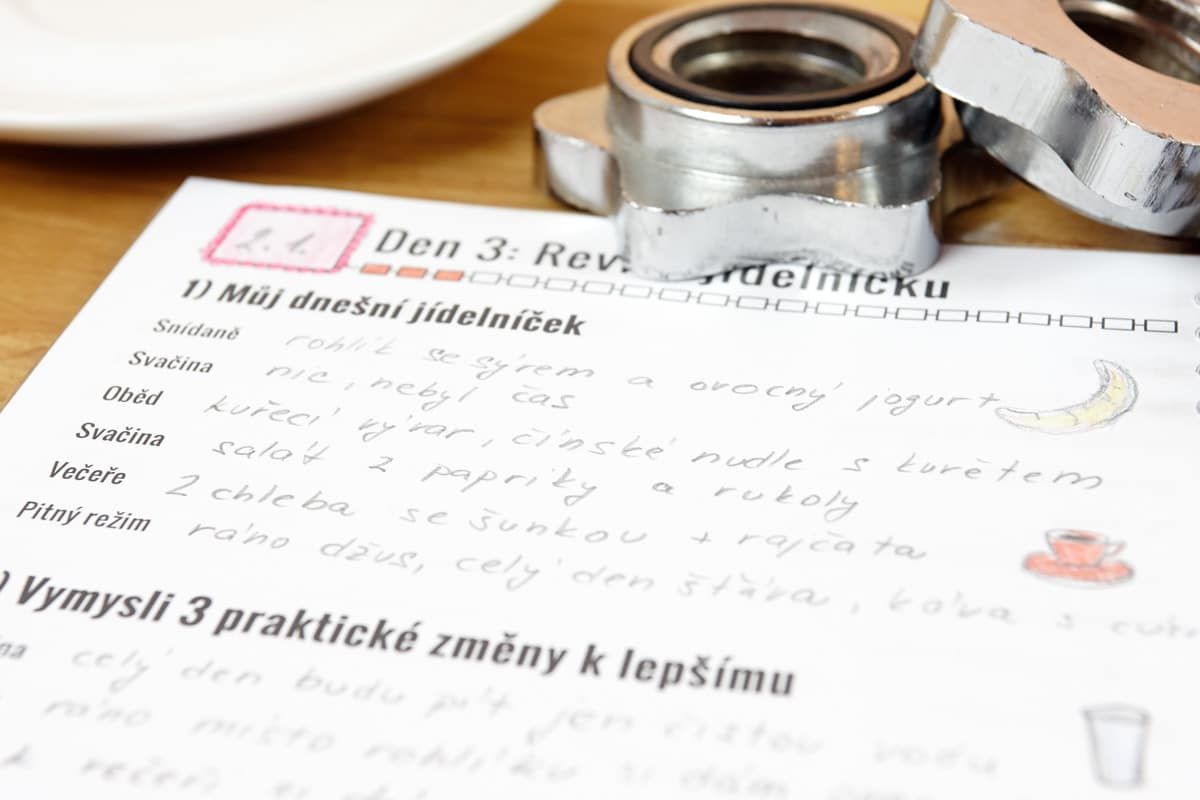 2.1.
Den 3: Rev jídelníčku
1) Můj dnešní jídelníček
Snídaně rohlík se sýrem a ovocný jogurt
Svačina nic, nebyl čas
Oběd kuřecí vývar, čínské nudle s kuřetem
Svačina salát 2 papriky a rukoly
Večeře 2 chleba se šunkou + rajčata
Pitný režim ráno džus, celý den šťáva, káva s
) Vymysli 3 praktické změny k lepšímu
na celý den budu pít jen čistou vodu
ráno místo rohlíku si dám
k večeři si